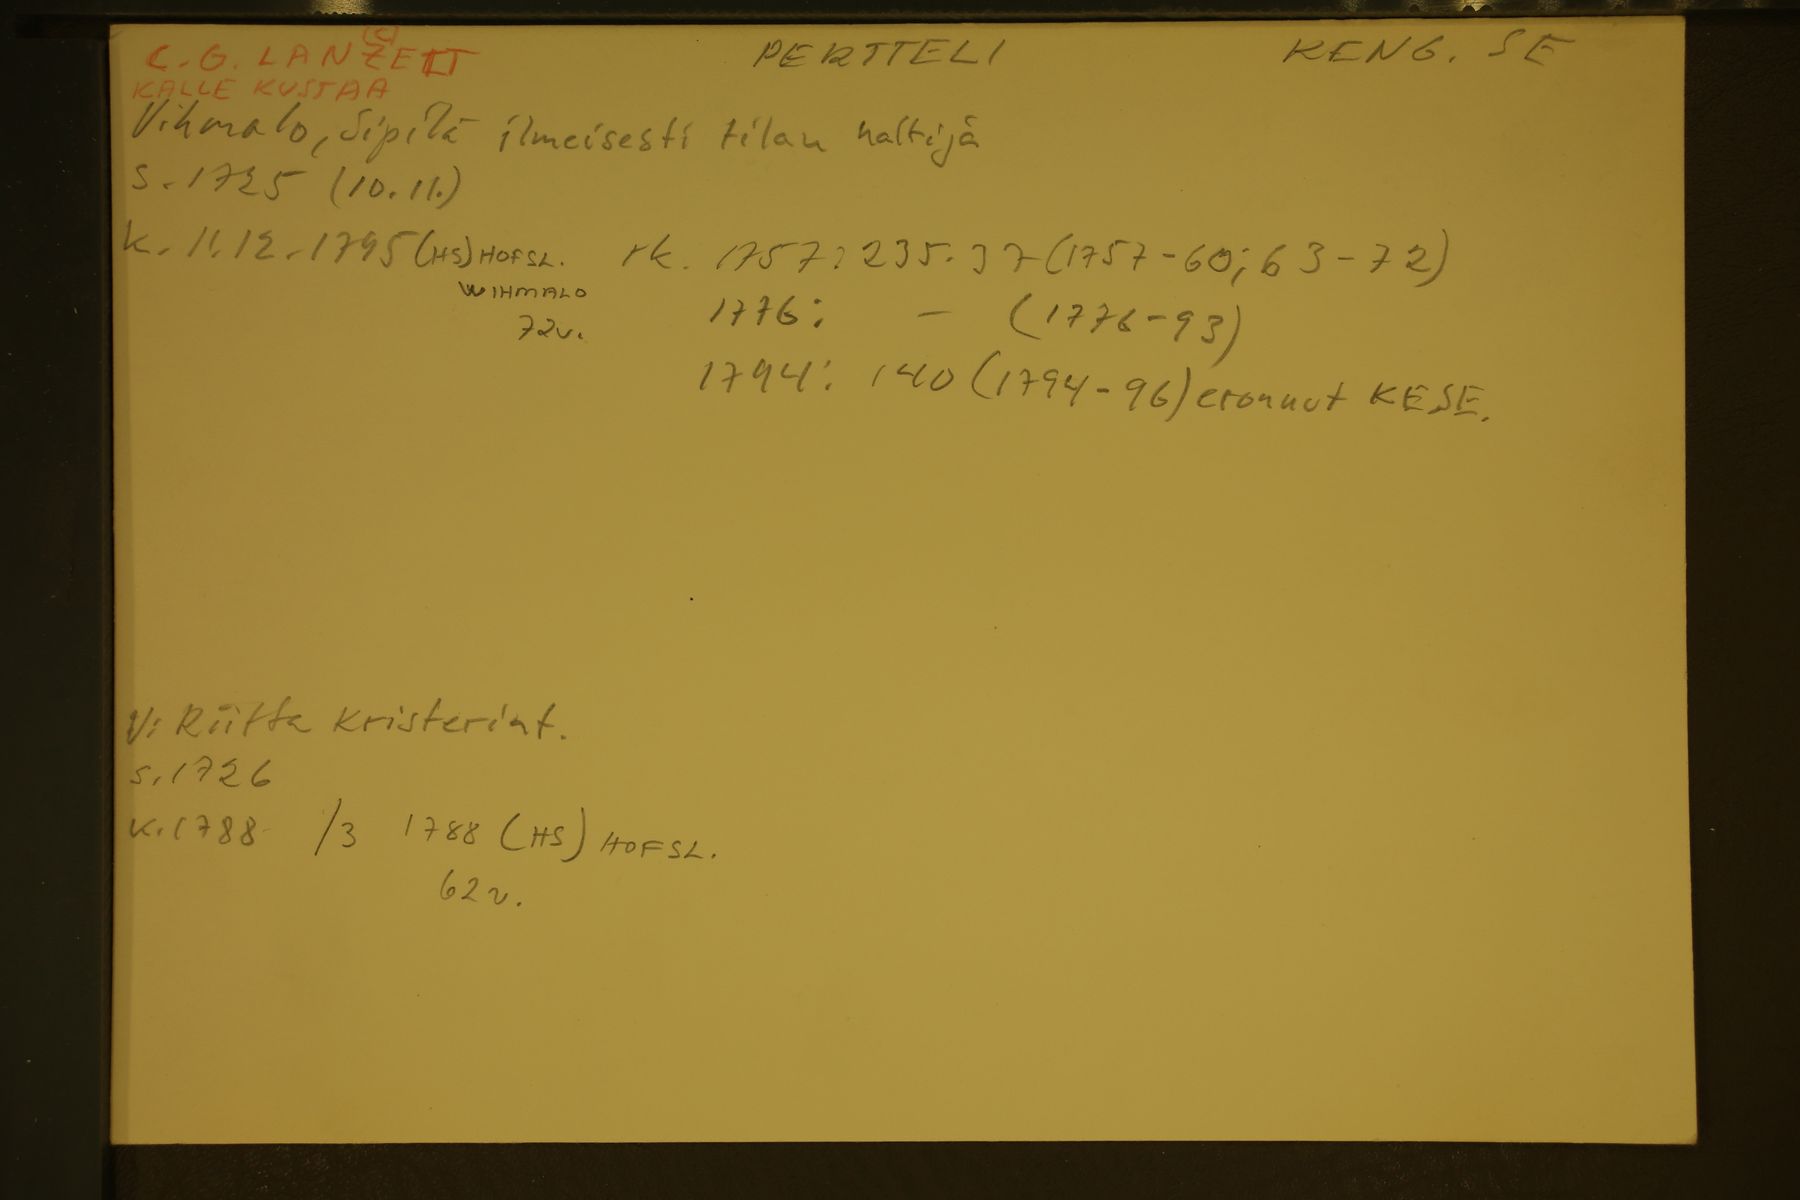 C. G. LANZETT (C) PERTTELI KENG. SE
KALLE KUSTAA
Vihmalo, Sipilä ilmeisesti tilan haltija
s. 1725 (10.11.)
k. 11.12.1795 (HS) HOFSL. rk. 1757: 235.37 (1757-60; 63-72)
WIHMALO 1776: - (1776-93)
72v.
1794: 140 (1794-96) eronnut KESE.
V: Riitta Kristerint.
s. 1726
k. 1788 /3 1788 (HS) HOFSL.
62v.